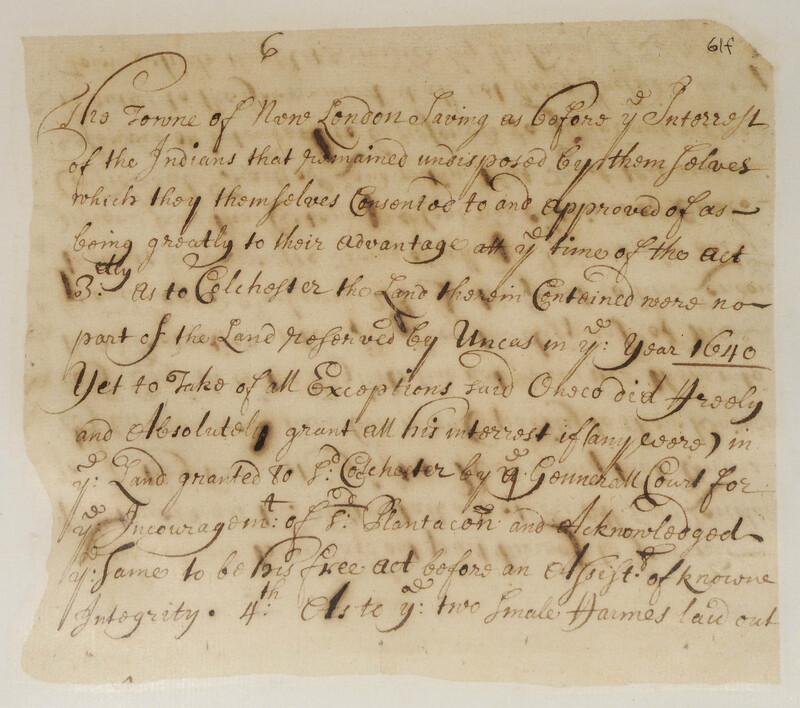 6
61f
The Towne of New London Saving as before yᵉ Interrest
of the Indians that remained undisposed by themselves
which they themselves Consented to and approved of as—
being greatly to their advantage att yᵉ time of the act
3:dly as to Colchester the Land therein Contained were no—
part of the Land reserved by Uncas in yᵉ: Year 1640
Yet to Take of all Exceptions said Oneco did Freely
and Absolutely grant all his interrest if (any were) in
yᵉ: Land granted to sᵈ: Colchester by yᵉ Gennerall Court for
yᵉ: Incouragemᵗ: of sᵈ: Plantacon and Acknowledged
yᵉ: same to be his free act before an Assistᵗ: of knowne
Integrity. 4:th As to yᵉ: two smale Farmes laid out